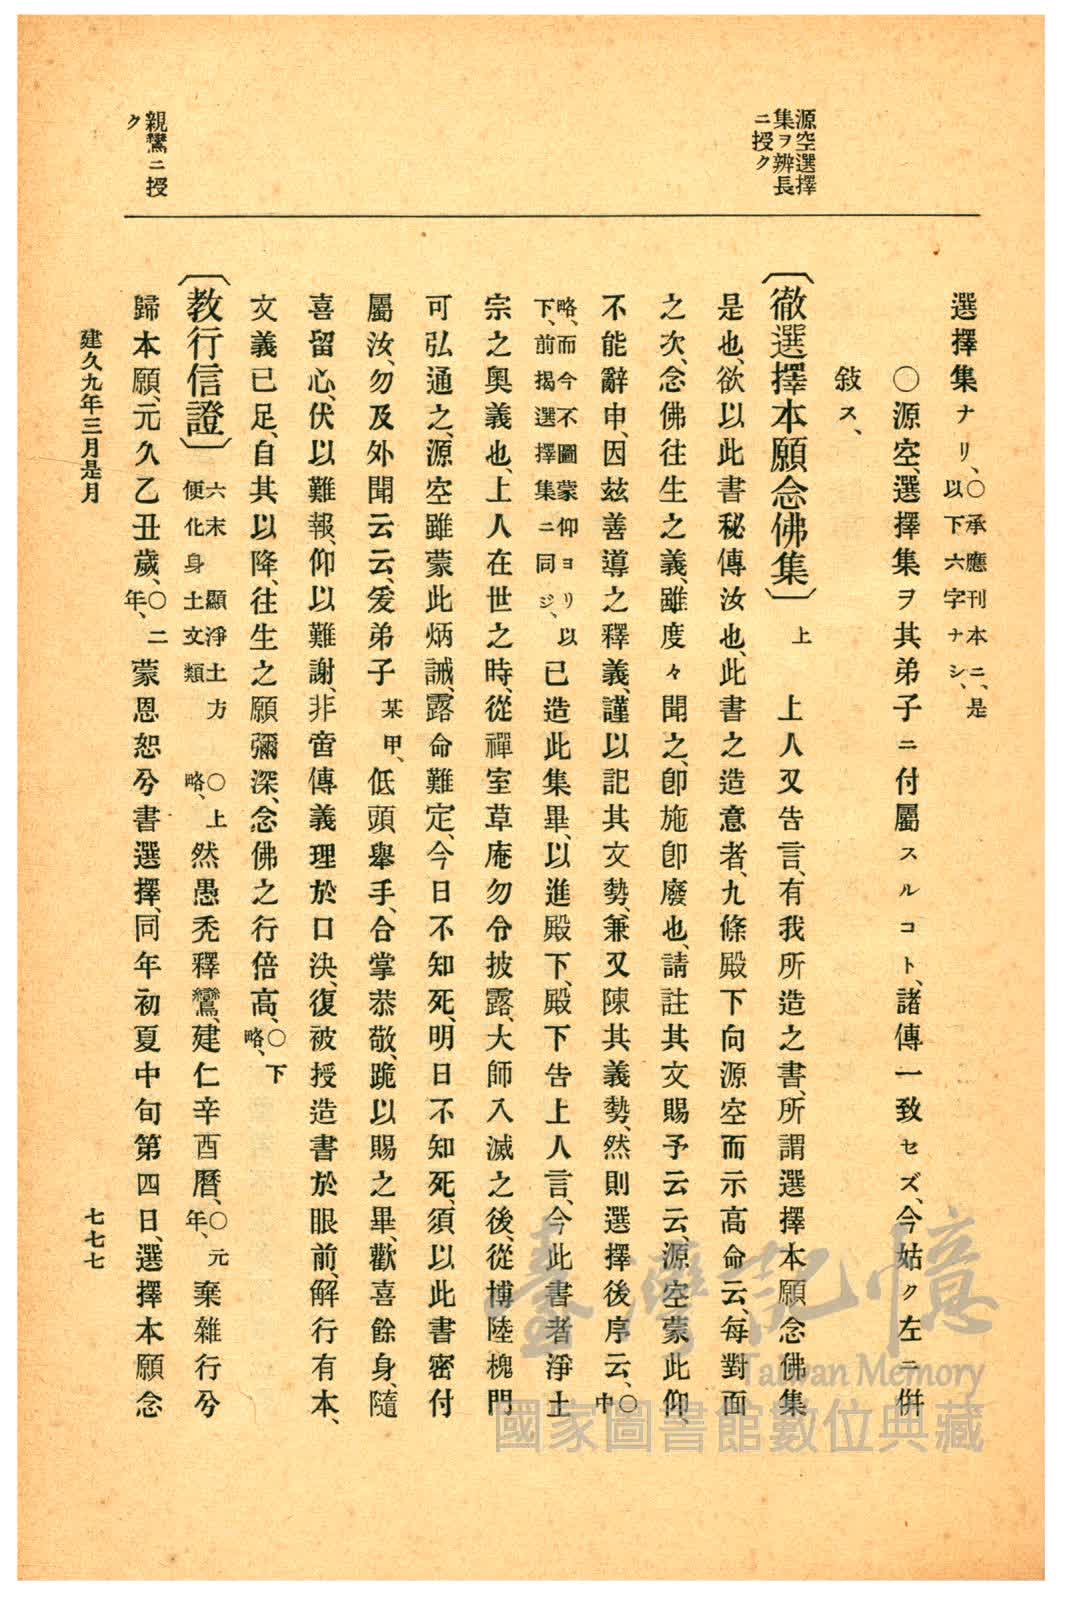 源空選擇
集ヲ辨長
ニ授ク
親鸞ニ授
ク
選擇集ナリ、○承應刊本ニ、是以下六字ナシ、
○源空、選擇集ヲ其弟子ニ付屬スルコト、諸傳一致セズ、今姑ク左ニ併
敍ス、
〔徹選擇本願念佛集〕上 上人又告言、有我所造之書、所謂選擇本願念佛集
是也、欲以此書秘傳汝也、此書之造意者、九條殿下向源空而示高命云、每對面
之次、念佛往生之義、雖度々聞之、卽施卽廢也、請註其文賜予云云、源空蒙此仰、
不能辭申、因玆善導之釋義、謹以記其文勢、兼又陳其義勢、然則選擇後序云、○中
略、而今不圖蒙仰ヨリ以下、前揭選擇集ニ同ジ、已造此集畢、以進殿下、殿下告上人言、今此書者淨土
宗之奧義也、上人在世之時、從禪室草庵勿令披露、大師入滅之後、從博陸槐門
可弘通之、源空雖蒙此炳誡、露命難定、今日不知死、明日不知死、須以此書密付
屬汝、勿及外聞云云、爰弟子某甲、低頭舉手、合掌恭敬、跪以賜之畢、歡喜餘身、隨
喜留心、伏以難報、仰以難謝、非啻傳義理於口決、復被授造書於眼前、解行有本、
文義已足、自其以降、往生之願彌深、念佛之行倍高、○下略、
〔教行信證〕六末 顯淨土方便化身土文類 ○上略、然愚禿釋鸞、建仁辛酉曆、○元年、棄雜行兮
歸本願、元久乙丑歲、○二年、蒙恩恕兮書選擇、同年初夏中旬第四日、選擇本願念
建久九年三月是月
七七七
臺灣記憶
Taiwan Memory
國家圖書館數位典藏